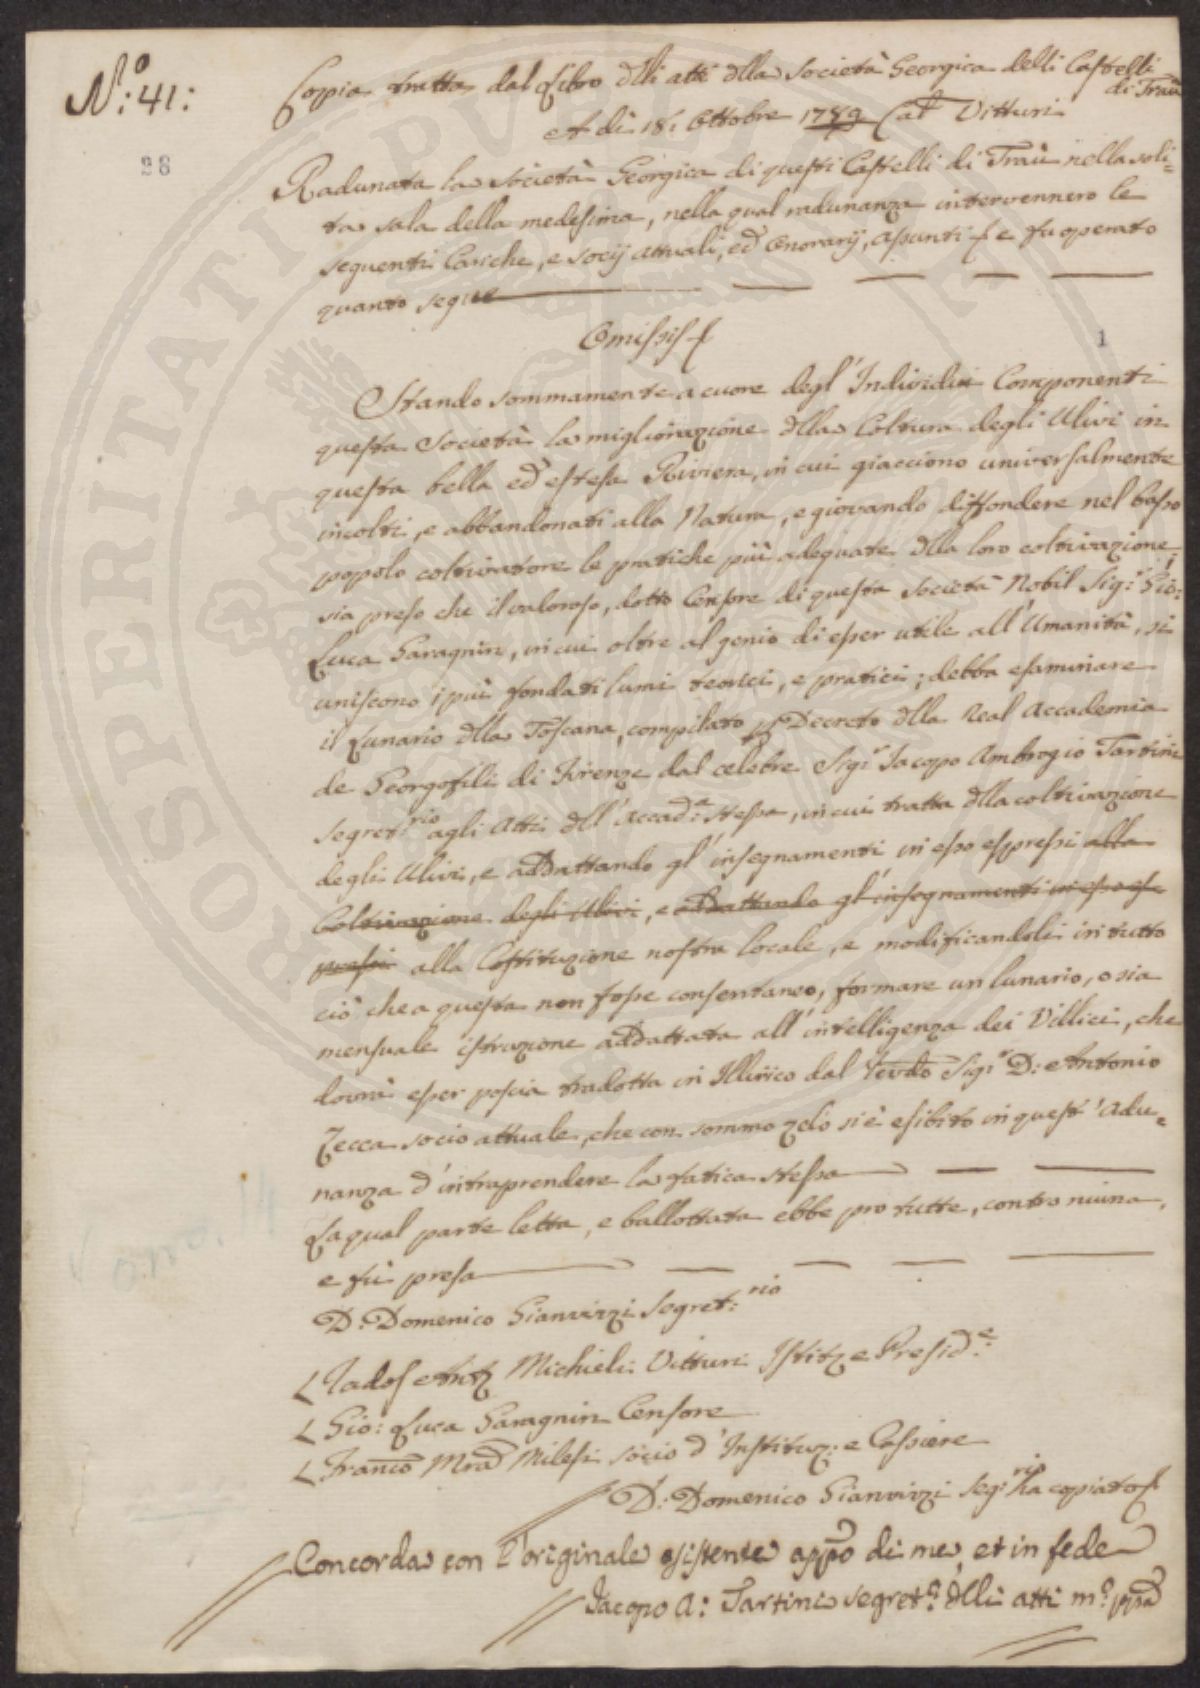 N.º: 41:
28
Copia tratta dal Libro dlli atti dlla Società Georgica delli Castelli
di Traù
A dì 18: Ottobre 1789 Cal Vitturi
Radunata la Società Georgica di questi Castelli di Traù nella soli=
ta sala della medesima, nella qual radunanza intervennero le
seguenti Cariche, e socij attuali, ed Onorarij, assunti e fu operato
quanto segue
Omissis
1
Stando sommamente a cuore degl' Individui Componenti
questa Società la migliorazione dlla Coltura degli Ulivi in
questa bella ed estesa Riviera, in cui giacciono universalmente
incolti, e abbandonati alla Natura, e giovando diffondere nel basso
popolo coltivatore le pratiche più adequate dlla loro coltivazione,
sia preso che il valoroso, dotto Censore di questa Società Nobil Sig.r Gio:
Luca Garagnin, in cui oltre al genio di esser utile all' Umanità, si
uniscono i più fondati lumi teorici, e pratici; debba esaminare
il Lunario dlla Toscana, compilato p Decreto dlla Real Accademia
de Georgofili di Firenze dal celebre Sig.r Jacopo Ambrogio Tartini
segret:rio agli Atti dll' Accad:a stessa, in cui tratta dlla coltivazione
degli Ulivi, e addattando gl' insegnamenti in esso espressi alla
Coltivazione degli Ulivi, e addattando gl' insegnamenti in esso es=
pressi alla Costituzione nostra locale, e modificandoli in tutto
ciò che a questa non fosse consentaneo, formare un lunario, o sia
mensuale istruzione addattata all' intelligenza dei Villici, che
dovrà esser poscia tradotta in Illirico dal Revdo Sig.r D: Antonio
Zecca socio attuale, che con sommo zelo si è esibito in quest' Adu=
nanza d' intraprendere la fatica stessa
La qual parte letta, e ballottata ebbe pro tutte, contro niuna,
e fù presa
D: Domenico Gianvizzi Segret:rio
Rados Michieli Vitturi Istitz e Presid:e
Gio: Luca Garagnin Censore
Franco Milesi socio d' Instituz: e Cassiere
D: Domenico Gianvizzi Seg:rio ha copiato
Concorda con l'originale esistente appo di me, et in fede
Jacopo A: Tartini segret:o dlli atti m:o ppa